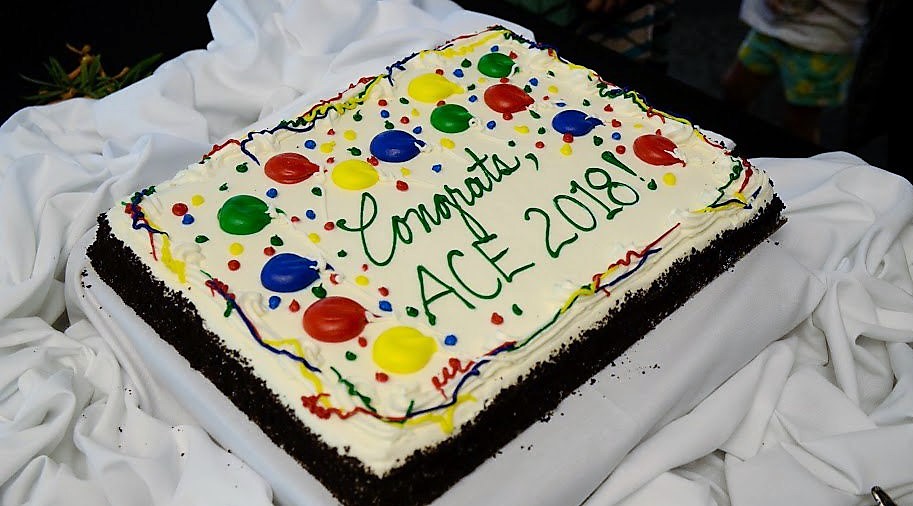 Congrats,
ACE 2018!